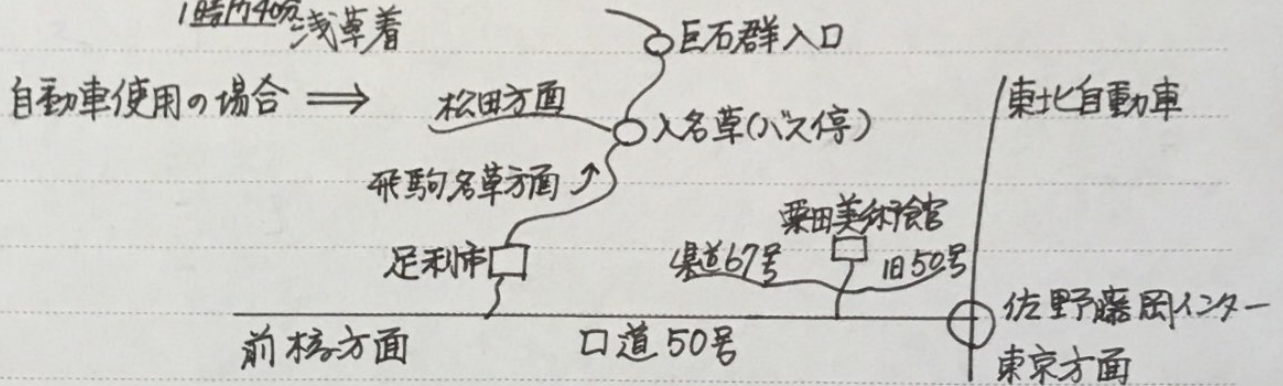 1時間40分 浅草着
巨石群入口
自動車使用の場合 ⇒
松田方面
東北自動車
入名草(バス停)
飛駒名草方面
粟田美術館
足利市
県道67号
旧50号
佐野藤岡インター
前橋方面
口道50号
東京方面